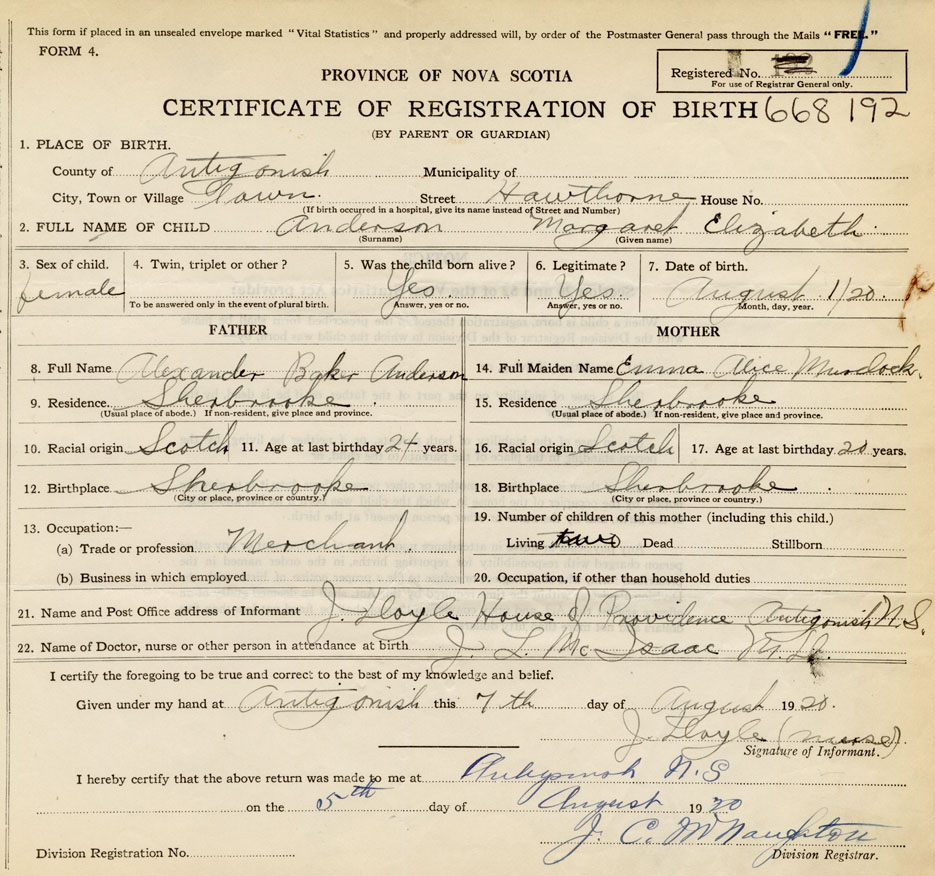 This form if placed in an unsealed envelope marked "Vital Statistics" and properly addressed will, by order of the Postmaster General pass through the Mails "FREE."
FORM 4.
PROVINCE OF NOVA SCOTIA
Registered No.
For use of Registrar General only.
CERTIFICATE OF REGISTRATION OF BIRTH 668 192
(BY PARENT OR GUARDIAN)
1. PLACE OF BIRTH.
County of Antigonish Municipality of
City, Town or Village Town. Street Hawthorne House No.
(If birth occurred in a hospital, give its name instead of Street and Number)
2. FULL NAME OF CHILD Anderson Margaret Elizabeth
(Surname) (Given name)
3. Sex of child. 4. Twin, triplet or other? 5. Was the child born alive? 6. Legitimate? 7. Date of birth.
female Yes. Yes. August 1/20
To be answered only in the event of plural birth. Answer, yes or no. Answer, yes or no. Month, day, year.
FATHER MOTHER
8. Full Name Alexander Baker Anderson 14. Full Maiden Name Emma Alice Murdock.
9. Residence Sherbrooke 15. Residence Sherbrooke
(Usual place of abode.) If non-resident, give place and province. (Usual place of abode.) If non-resident, give place and province.
10. Racial origin Scotch 11. Age at last birthday 24 years. 16. Racial origin Scotch 17. Age at last birthday 20 years.
12. Birthplace Sherbrooke 18. Birthplace Sherbrooke
(City or place, province or country.) (City or place, province or country.)
13. Occupation:— 19. Number of children of this mother (including this child.)
(a) Trade or profession Merchant. Living Dead Stillborn
(b) Business in which employed 20. Occupation, if other than household duties
21. Name and Post Office address of Informant J. Doyle House of Providence Antigonish N.S.
22. Name of Doctor, nurse or other person in attendance at birth J. L. McIsaac M.D.
I certify the foregoing to be true and correct to the best of my knowledge and belief.
Given under my hand at Antigonish this 7th day of August 1920.
J. Doyle (nurse).
Signature of Informant.
I hereby certify that the above return was made to me at Antigonish N.S
on the 5th day of August 1920
J. C. McNaughton
Division Registration No. Division Registrar.